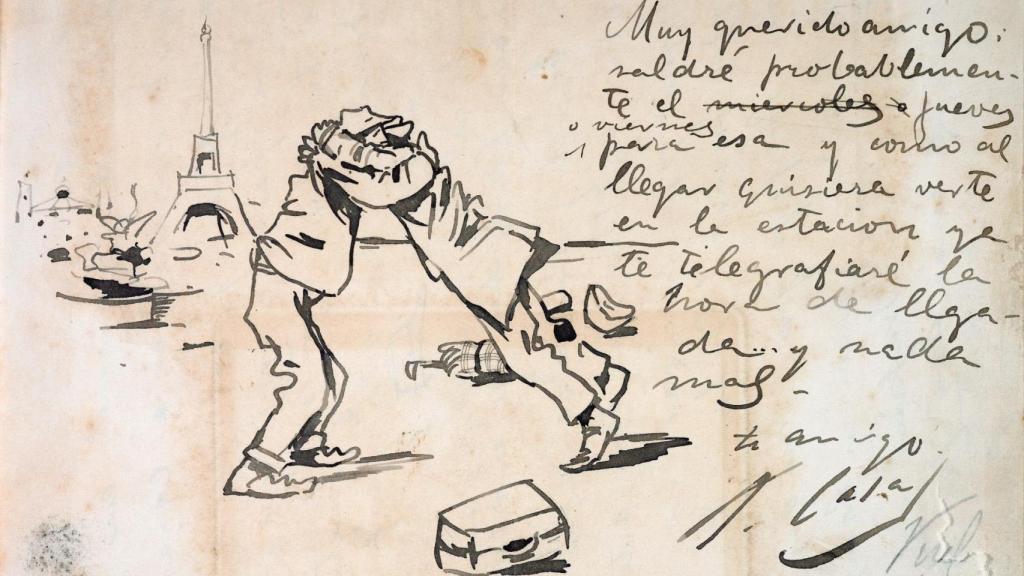 Muy querido amigo:
saldré probablemen-
te el miercoles o jueves
o viernes
para esa y como al
llegar quisiera verte
en la estacion ya
te telegrafiaré la
hora de llga-
da... y nada
mas -
tu amigo.
R. Casas